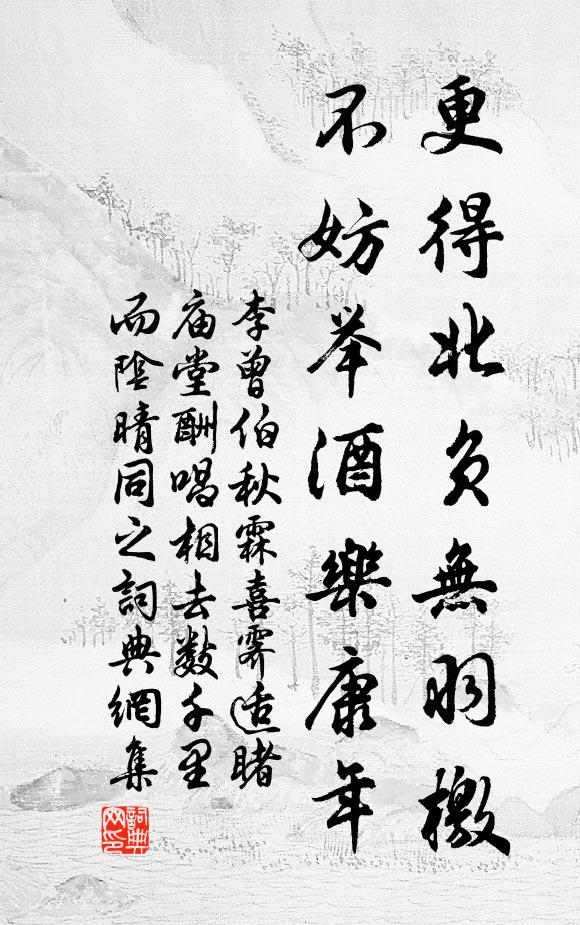 更得北负無羽檄
不妨举酒樂康年
李曾伯秋霖喜霽适睹
庙堂酬唱相去数千里
而陰晴同之詞典網集
詞典网印